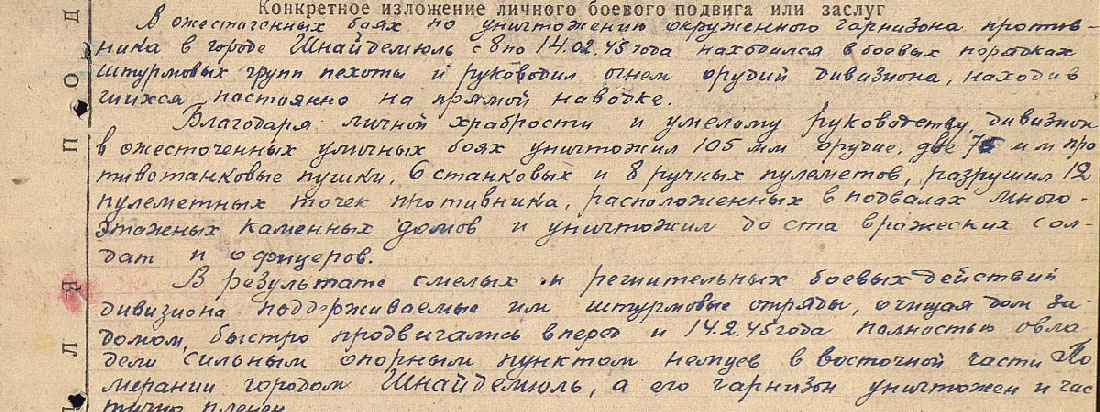 Конкретное изложение личного боевого подвига или заслуг
В ожесточенных боях по уничтожению окруженного гарнизона против-
ника в городе Шнайдемюль с 8 по 14.02.45 года находился в боевых порядках
штурмовых групп пехоты и руководил огнем орудий дивизиона, находив
шихся постоянно на прямой наводке.
Благодаря личной храбрости и умелому руководству дивизион
в ожесточенных уличных боях уничтожил 105 мм орудие, две 75 мм про
тивотанковые пушки, 6 станковых и 8 ручных пулеметов, разрушил 12
пулеметных точек противника, расположенных в подвалах много-
этажных каменных домов и уничтожил до ста вражеских сол-
дат и офицеров.
В результате смелых и решительных боевых действий
дивизиона поддерживаемые им штурмовые отряды, очищая дом за
домом, быстро продвигались вперед и 14.2.45 года полностью овла
дели сильным опорным пунктом немцев в восточной части По
мерании городом Шнайдемюль, а его гарнизон уничтожен и час
тично пленен
Д
О
П
Я
Л